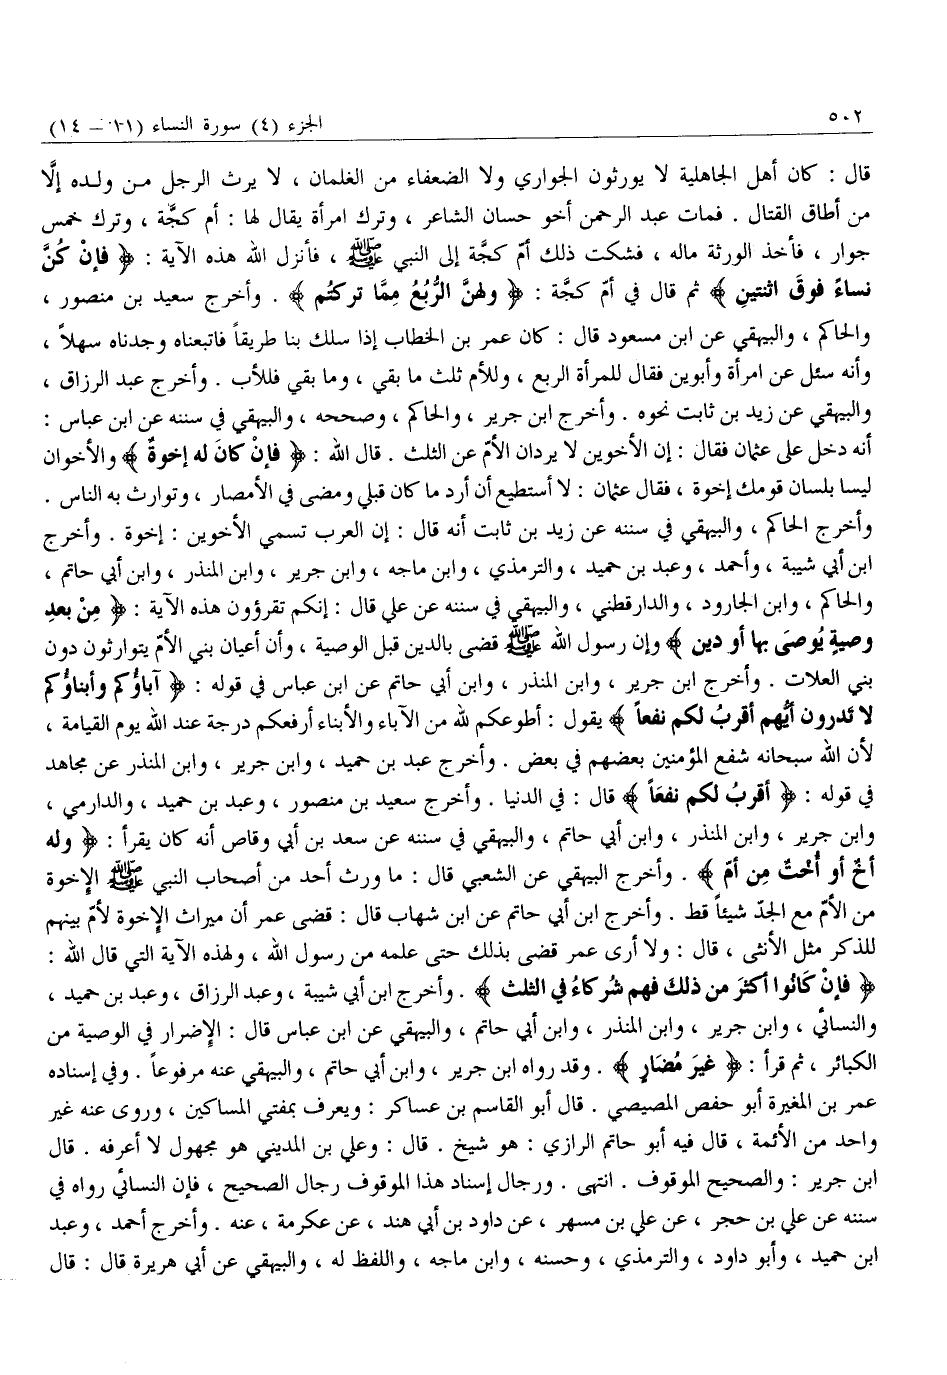 ٥٠٢
الجزء (٤) سورة النساء (١١ – ١٤)
قال : كان أهل الجاهلية لا يورثون الجواري ولا الضعفاء من الغلمان ، لا يرث الرجل من ولده إلَّا
من أطاق القتال . فمات عبد الرحمن أخو حسان الشاعر ، وترك امرأة يقال لها : أم كجَّة ، وترك خمس
جوار ، فأخذ الورثة ماله ، فشكت ذلك أمّ كجَّة إلى النبي ﷺ ، فأنزل الله هذه الآية : ﴿ فإنْ كُنَّ
نساءً فوقَ اثنتينِ ﴾ ثم قال في أمّ كجَّة : ﴿ ولهنَّ الرُّبُعُ مِمَّا تركتُم ﴾ . وأخرج سعيد بن منصور ،
والحاكم ، والبيهقي عن ابن مسعود قال : كان عمر بن الخطاب إذا سلك بنا طريقاً فاتبعناه وجدناه سهلاً ،
وأنه سئل عن امرأة وأبوين فقال للمرأة الربع ، وللأم ثلث ما بقي ، وما بقي فللأب . وأخرج عبد الرزاق ،
والبيهقي عن زيد بن ثابت نحوه . وأخرج ابن جرير ، والحاكم ، وصححه ، والبيهقي في سننه عن ابن عباس :
أنه دخل على عثمان فقال : إن الأخوين لا يردان الأمّ عن الثلث . قال الله : ﴿ فإنْ كانَ له إخوةٌ ﴾ والأخوان
ليسا بلسان قومك إخوة ، فقال عثمان : لا أستطيع أن أرد ما كان قبلي ومضى في الأمصار ، وتوارث به الناس .
وأخرج الحاكم ، والبيهقي في سننه عن زيد بن ثابت أنه قال : إن العرب تسمي الأخوين : إخوة . وأخرج
ابن أبي شيبة ، وأحمد ، وعبد بن حميد ، والترمذي ، وابن ماجه ، وابن جرير ، وابن المنذر ، وابن أبي حاتم ،
والحاكم ، وابن الجارود ، والدارقطني ، والبيهقي في سننه عن علي قال : إنكم تقرؤون هذه الآية : ﴿ مِنْ بعدِ
وصيةٍ يُوصَى بها أو دين ﴾ وإن رسول الله ﷺ قضى بالدين قبل الوصية ، وأن أعيان بني الأمّ يتوارثون دون
بني العلات . وأخرج ابن جرير ، وابن المنذر ، وابن أبي حاتم عن ابن عباس في قوله : ﴿ آباؤُكم وأبناؤكم
لا تدرون أيُّهم أقربُ لكم نفعاً ﴾ يقول : أطوعكم لله من الآباء والأبناء أرفعكم درجة عند الله يوم القيامة ،
لأن الله سبحانه شفع المؤمنين بعضهم في بعض . وأخرج عبد بن حميد ، وابن جرير ، وابن المنذر عن مجاهد
في قوله : ﴿ أقربُ لكم نفعَاً ﴾ قال : في الدنيا . وأخرج سعيد بن منصور ، وعبد بن حميد ، والدارمي ،
وابن جرير ، وابن المنذر ، وابن أبي حاتم ، والبيهقي في سننه عن سعد بن أبي وقاص أنه كان يقرأ : ﴿ وله
أخٌ أو أُختٌ مِن أمّ ﴾ . وأخرج البيهقي عن الشعبي قال : ما ورث أحد من أصحاب النبي ﷺ الإخوة
من الأمّ مع الجدّ شيئاً قط . وأخرج ابن أبي حاتم عن ابن شهاب قال : قضى عمر أن ميراث الإخوة لأمّ بينهم
للذكر مثل الأنثى ، قال : ولا أرى عمر قضى بذلك حتى علمه من رسول الله ، ولهذه الآية التي قال الله :
﴿ فإنْ كَانُوا أكثرَ من ذلكَ فهم شركاءُ في الثلث ﴾ . وأخرج ابن أبي شيبة ، وعبد الرزاق ، وعبد بن حميد ،
والنسائي ، وابن جرير ، وابن المنذر ، وابن أبي حاتم ، والبيهقي عن ابن عباس قال : الإضرار في الوصية من
الكبائر ، ثم قرأ : ﴿ غيرَ مُضَارٍ ﴾ . وقد رواه ابن جرير ، وابن أبي حاتم ، والبيهقي عنه مرفوعاً . وفي إسناده
عمر بن المغيرة أبو حفص المصيصي . قال أبو القاسم بن عساكر : ويعرف بمفتي المساكين ، وروى عنه غير
واحد من الأئمة ، قال فيه أبو حاتم الرازي : هو شيخ . قال : وعلي بن المديني هو مجهول لا أعرفه . قال
ابن جرير : والصحيح الموقوف . انتهى . ورجال إسناد هذا الموقوف رجال الصحيح ، فإن النسائي رواه في
سننه عن علي بن حجر ، عن علي بن مسهر ، عن داود بن أبي هند ، عن عكرمة ، عنه . وأخرج أحمد ، وعبد
ابن حميد ، وأبو داود ، والترمذي ، وحسنه ، وابن ماجه ، واللفظ له ، والبيهقي عن أبي هريرة قال : قال